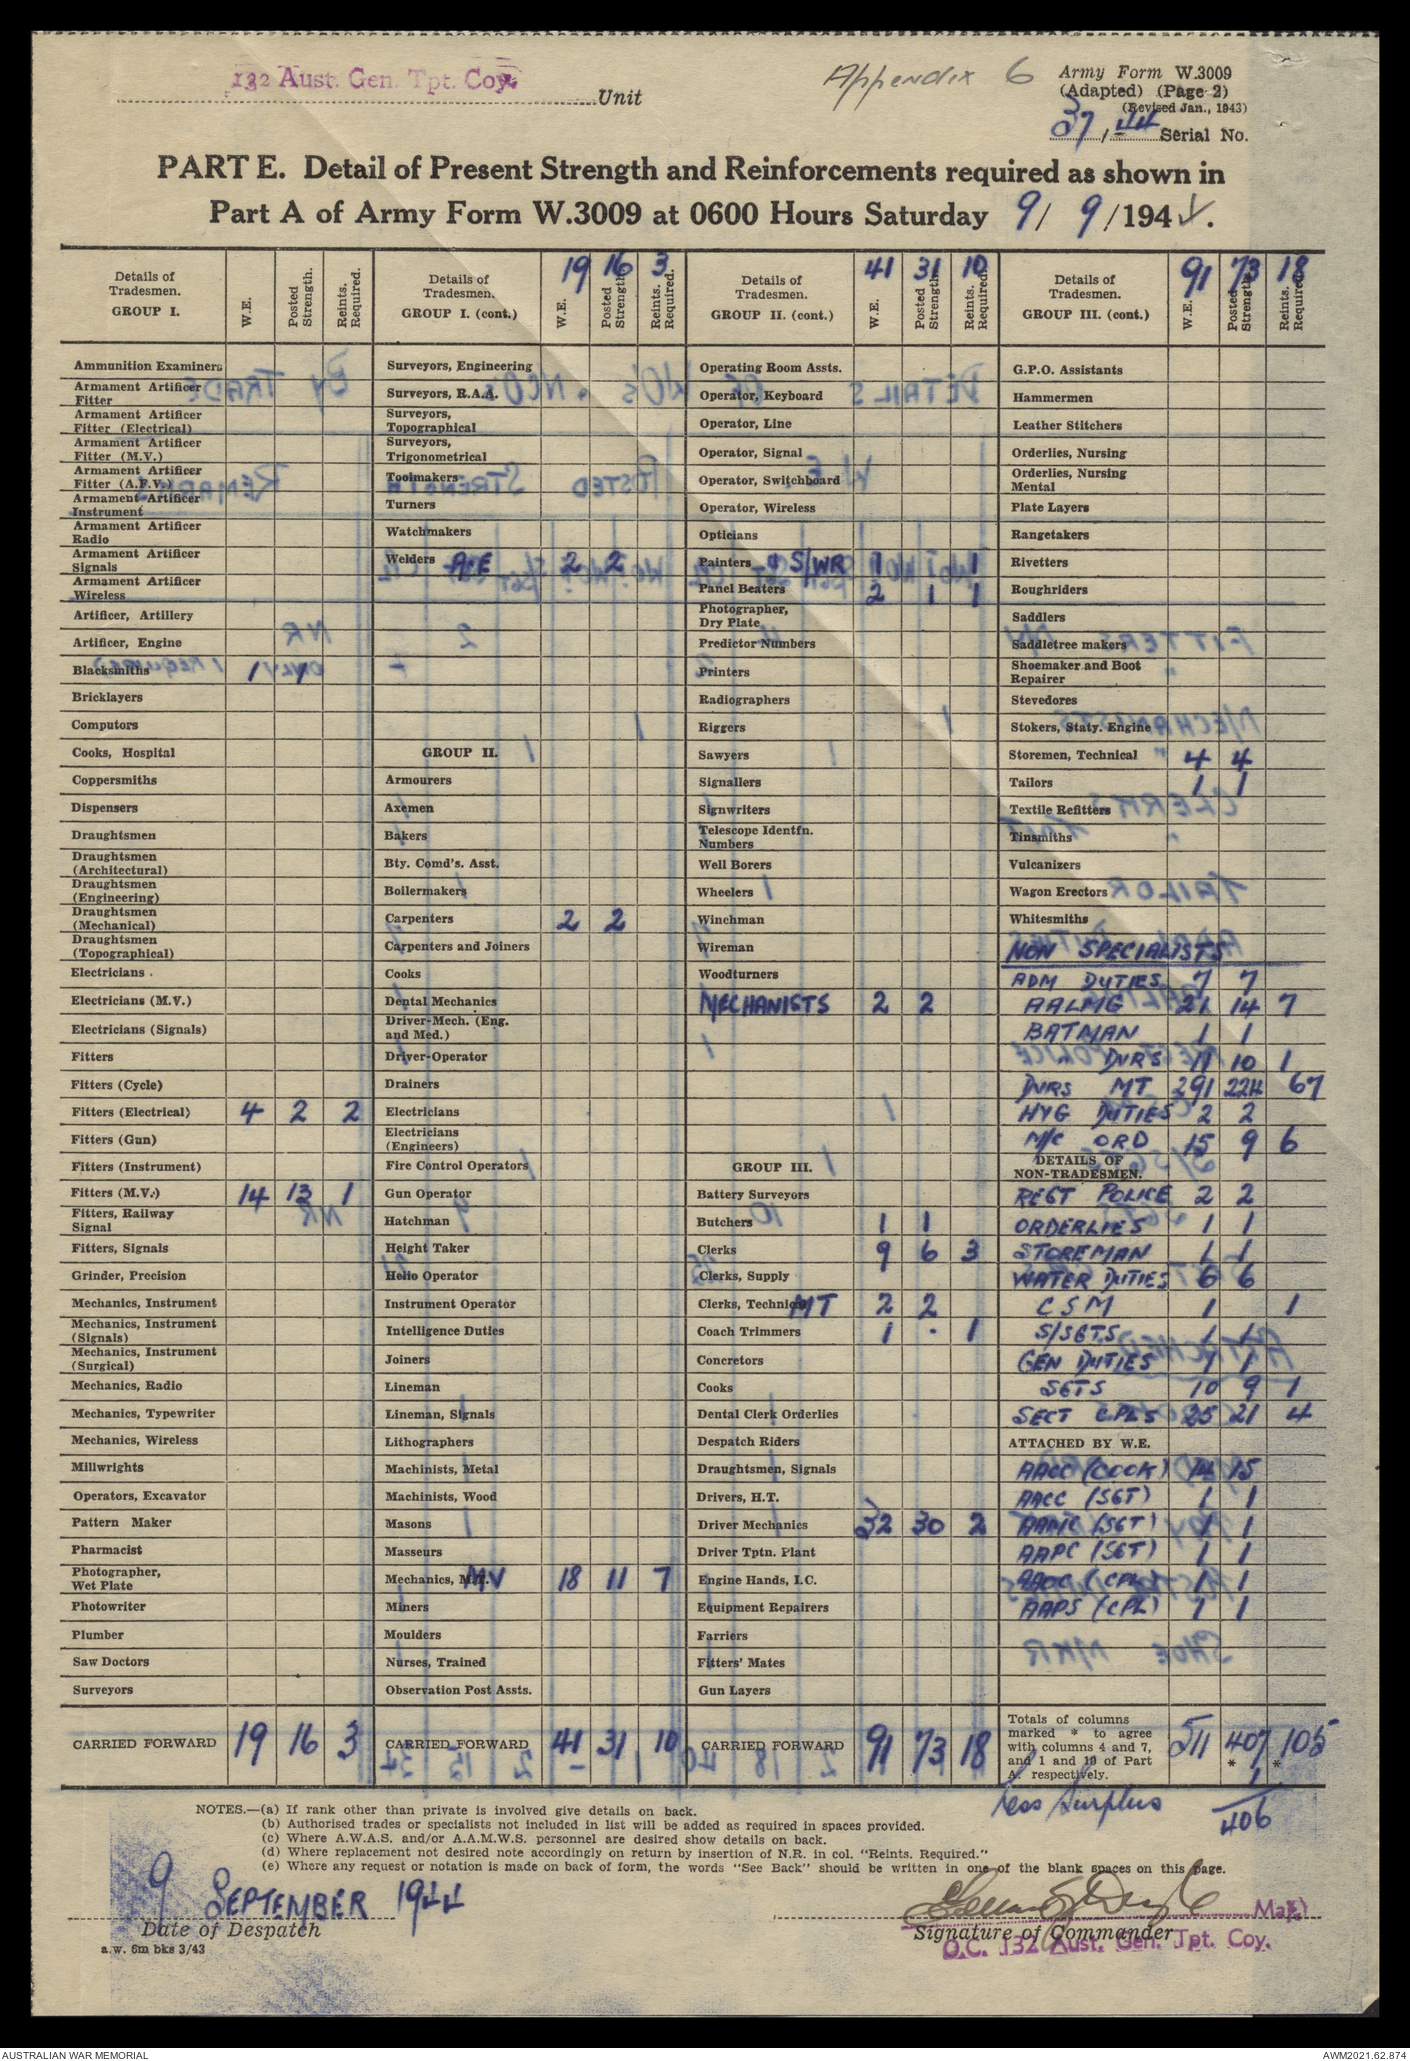 132 Aust. Gen. Tpt. Coy.
Unit
Appendix 6
Army Form W.3009
(Adapted) (Page 2)
(Revised Jan., 1943)
37/44 Serial No.
PART E. Detail of Present Strength and Reinforcements required as shown in
Part A of Army Form W.3009 at 0600 Hours Saturday 9/ 9/1944.
Details of Tradesmen. GROUP I. W.E. Posted Strength. Reints. Required.
Ammunition Examiners
Armament Artificer Fitter
Armament Artificer Fitter (Electrical)
Armament Artificer Fitter (M.V.)
Armament Artificer Fitter (A.F.V.)
Armament Artificer Instrument
Armament Artificer Radio
Armament Artificer Signals
Armament Artificer Wireless
Artificer, Artillery
Artificer, Engine
Blacksmiths 1 1
Bricklayers
Computors
Cooks, Hospital
Coppersmiths
Dispensers
Draughtsmen
Draughtsmen (Architectural)
Draughtsmen (Engineering)
Draughtsmen (Mechanical)
Draughtsmen (Topographical)
Electricians
Electricians (M.V.)
Electricians (Signals)
Fitters
Fitters (Cycle)
Fitters (Electrical) 4 2 2
Fitters (Gun)
Fitters (Instrument)
Fitters (M.V.) 14 13 1
Fitters, Railway Signal
Fitters, Signals
Grinder, Precision
Mechanics, Instrument
Mechanics, Instrument (Signals)
Mechanics, Instrument (Surgical)
Mechanics, Radio
Mechanics, Typewriter
Mechanics, Wireless
Millwrights
Operators, Excavator
Pattern Maker
Pharmacist
Photographer, Wet Plate
Photowriter
Plumber
Saw Doctors
Surveyors
CARRIED FORWARD 19 16 3
Details of Tradesmen. GROUP I. (cont.) W.E. Posted Strength. Reints. Required.
19 16 3
Surveyors, Engineering
Surveyors, R.A.A.
Surveyors, Topographical
Surveyors, Trigonometrical
Toolmakers
Turners
Watchmakers
Welders A&E 2 2
GROUP II.
Armourers
Axemen
Bakers
Bty. Comd's. Asst.
Boilermakers
Carpenters 2 2
Carpenters and Joiners
Cooks
Dental Mechanics
Driver-Mech. (Eng. and Med.)
Driver-Operator
Drainers
Electricians
Electricians (Engineers)
Fire Control Operators
Gun Operator
Hatchman
Height Taker
Helio Operator
Instrument Operator
Intelligence Duties
Joiners
Lineman
Lineman, Signals
Lithographers
Machinists, Metal
Machinists, Wood
Masons
Masseurs
Mechanics, MV 18 11 7
Miners
Moulders
Nurses, Trained
Observation Post Assts.
CARRIED FORWARD 41 31 10
Details of Tradesmen. GROUP II. (cont.) W.E. Posted Strength. Reints. Required.
41 31 10
Operating Room Assts.
Operator, Keyboard
Operator, Line
Operator, Signal
Operator, Switchboard
Operator, Wireless
Opticians
Painters & S/WR 1 1
Panel Beaters 2 1 1
Photographer, Dry Plate
Predictor Numbers
Printers
Radiographers
Riggers
Sawyers
Signallers
Signwriters
Telescope Identfn. Numbers
Well Borers
Wheelers
Winchman
Wireman
Woodturners
MECHANISTS 2 2
GROUP III.
Battery Surveyors
Butchers 1 1
Clerks 9 6 3
Clerks, Supply
Clerks, Technical MT 2 2
Coach Trimmers 1 . 1
Concretors
Cooks
Dental Clerk Orderlies
Despatch Riders
Draughtsmen, Signals
Drivers, H.T.
Driver Mechanics 32 30 2
Driver Tptn. Plant
Engine Hands, I.C.
Equipment Repairers
Farriers
Fitters' Mates
Gun Layers
CARRIED FORWARD 91 73 18
Details of Tradesmen. GROUP III. (cont.) W.E. Posted Strength. Reints. Required.
91 73 18
G.P.O. Assistants
Hammermen
Leather Stitchers
Orderlies, Nursing
Orderlies, Nursing Mental
Plate Layers
Rangetakers
Rivetters
Roughriders
Saddlers
Saddletree makers
Shoemaker and Boot Repairer
Stevedores
Stokers, Staty. Engine
Storemen, Technical 4 4
Tailors 1 1
Textile Refitters
Tinsmiths
Vulcanizers
Wagon Erectors
Whitesmiths
NON SPECIALISTS
ADM DUTIES 7 7
AALMG 21 14 7
BATMAN 1 1
" DVRS 11 10 1
DVRS MT 291 224 67
HYG DUTIES 2 2
M/C ORD 15 9 6
DETAILS OF NON-TRADESMEN.
REGT POLICE 2 2
ORDERLIES 1 1
STOREMAN 1 1
WATER DUTIES 6 6
CSM 1 1
S/SGTS 1 1
GEN DUTIES 1 1
SGTS 10 9 1
SECT CPLS 25 21 4
ATTACHED BY W.E.
AACC (COOK) 14 15
AACC (SGT) 1 1
AAMC (SGT) 1 1
AAPC (SGT) 1 1
AAOC (CPL) 1 1
AAPS (CPL) 1 1
Totals of columns marked * to agree with columns 4 and 7, and 1 and 10 of Part A. respectively. 511 407 * 105 *
less Surplus 1
406
NOTES.—(a) If rank other than private is involved give details on back.
(b) Authorised trades or specialists not included in list will be added as required in spaces provided.
(c) Where A.W.A.S. and/or A.A.M.W.S. personnel are desired show details on back.
(d) Where replacement not desired note accordingly on return by insertion of N.R. in col. "Reints. Required."
(e) Where any request or notation is made on back of form, the words "See Back" should be written in one of the blank spaces on this page.
9 SEPTEMBER 1944
Date of Despatch
a.w. 6m bks 3/43
Maj)
Signature of Commander
O.C. 132 Aust. Gen. Tpt. Coy.
AUSTRALIAN WAR MEMORIAL
AWM2021.62.874